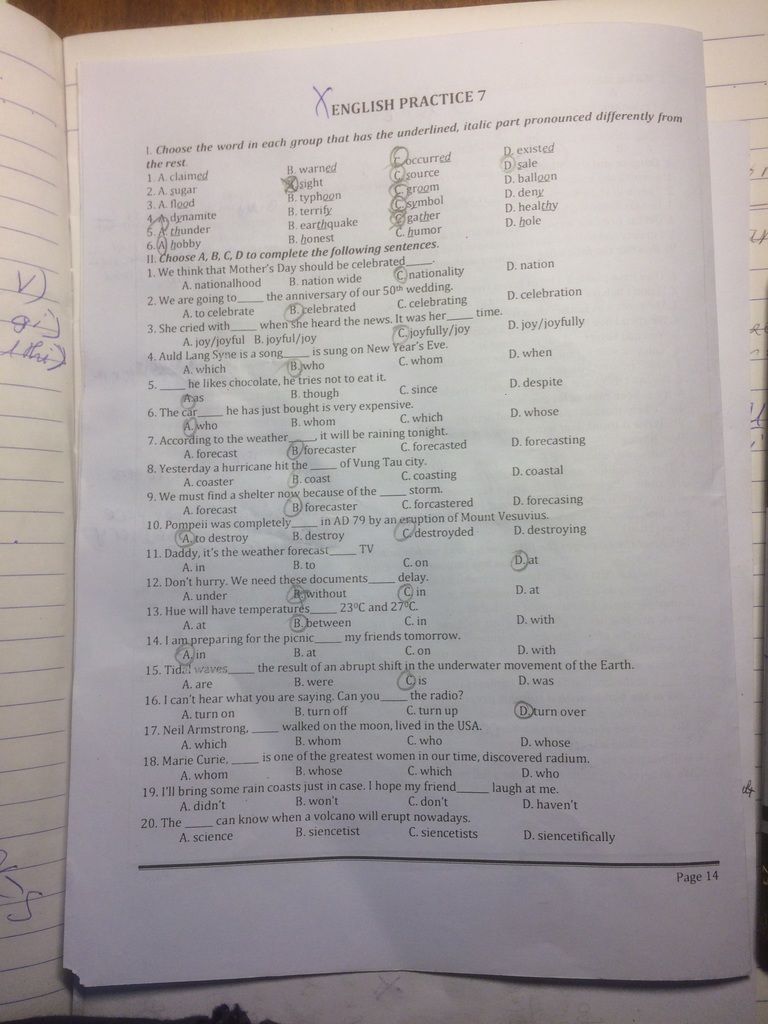 ENGLISH PRACTICE 7
I. Choose the word in each group that has the underlined, italic part pronounced differently from
the rest.
1. A. claimed B. warned C. occurred D. existed
2. A. sugar B. sight C. source D. sale
3. A. flood B. typhoon C. groom D. balloon
4. A. dynamite B. terrify C. symbol D. deny
5. A. thunder B. earthquake C. gather D. healthy
6. A. hobby B. honest C. humor D. hole
II. Choose A, B, C, D to complete the following sentences.
1. We think that Mother's Day should be celebrated_____.
A. nationalhood B. nation wide C. nationality D. nation
2. We are going to_____ the anniversary of our 50th wedding.
A. to celebrate B. celebrated C. celebrating D. celebration
3. She cried with_____ when she heard the news. It was her_____ time.
A. joy/joyful B. joyful/joy C. joyfully/joy D. joy/joyfully
4. Auld Lang Syne is a song_____ is sung on New Year's Eve.
A. which B. who C. whom D. when
5. _____ he likes chocolate, he tries not to eat it.
A. as B. though C. since D. despite
6. The car_____ he has just bought is very expensive.
A. who B. whom C. which D. whose
7. According to the weather_____, it will be raining tonight.
A. forecast B. forecaster C. forecasted D. forecasting
8. Yesterday a hurricane hit the _____ of Vung Tau city.
A. coaster B. coast C. coasting D. coastal
9. We must find a shelter now because of the _____ storm.
A. forecast B. forecaster C. forcastered D. forecasing
10. Pompeii was completely_____ in AD 79 by an eruption of Mount Vesuvius.
A. to destroy B. destroy C. destroyded D. destroying
11. Daddy, it's the weather forecast_____ TV
A. in B. to C. on D. at
12. Don't hurry. We need these documents_____ delay.
A. under B. without C. in D. at
13. Hue will have temperatures_____ 23°C and 27°C.
A. at B. between C. in D. with
14. I am preparing for the picnic_____ my friends tomorrow.
A. in B. at C. on D. with
15. Tidal waves_____ the result of an abrupt shift in the underwater movement of the Earth.
A. are B. were C. is D. was
16. I can't hear what you are saying. Can you_____ the radio?
A. turn on B. turn off C. turn up D. turn over
17. Neil Armstrong, _____ walked on the moon, lived in the USA.
A. which B. whom C. who D. whose
18. Marie Curie, _____ is one of the greatest women in our time, discovered radium.
A. whom B. whose C. which D. who
19. I'll bring some rain coasts just in case. I hope my friend_____ laugh at me.
A. didn't B. won't C. don't D. haven't
20. The _____ can know when a volcano will erupt nowadays.
A. science B. siencetist C. siencetists D. siencetifically
Page 14